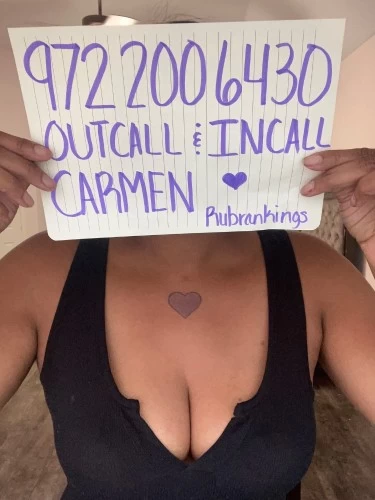 972 200 6430
OUTCALL & INCALL
CARMEN ♥
Rubrankings